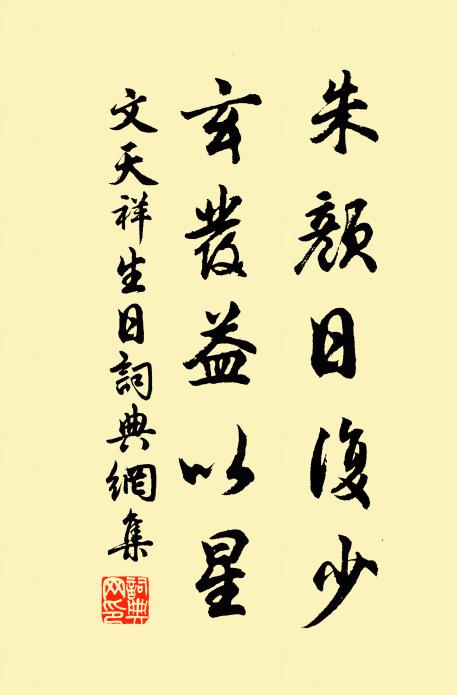 朱顏日復少
玄發益以星
文天祥生日詞典網集
詞典
网印